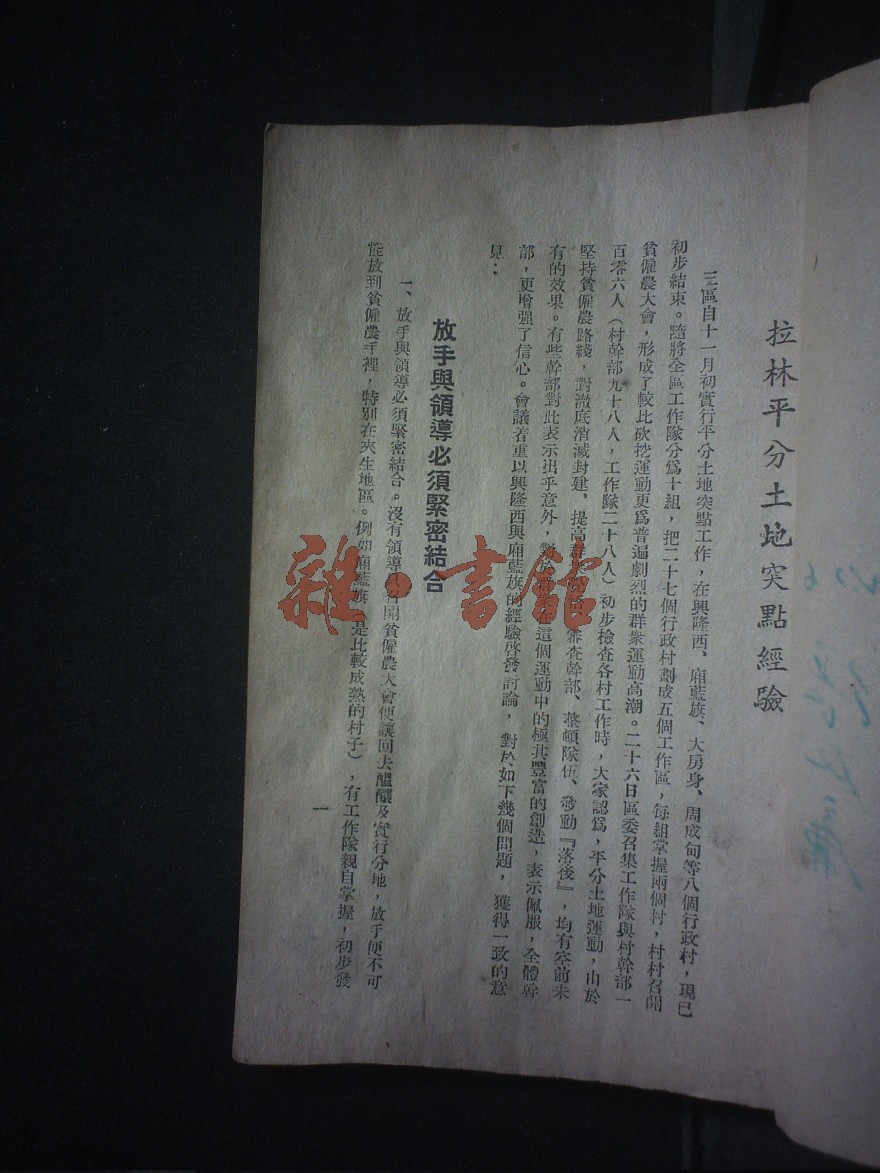 拉林平分土地突點經驗
三區自十一月初實行平分土地突點工作，在興隆西、廂藍旗、大房身、周成甸等八個行政村，現已
初步結束。隨將全區工作隊分爲十組，把二十七個行政村劃成五個工作區，每組掌握兩個村，村村召開
貧僱農大會，形成了較比砍挖運動更爲普遍劇烈的群衆運動高潮。二十六日區委召集工作隊與村幹部一
百零六人（村幹部九十八人，工作隊二十八人）初步檢查各村工作時，大家認爲，平分土地運動，由於
堅持貧僱農路綫，對澈底消滅封建，提高群衆 審查幹部、整頓隊伍、發動『落後』，均有空前未
有的效果。有些幹部對此表示出乎意外，對於群衆在這個運動中的極其豐富的創造，表示佩服，全體幹
部，更增强了信心。會議着重以興隆西與廂藍旗的經驗啓發討論，對於如下幾個問題，獲得一致的意
見：
放手與領導必須緊密結合
一、放手與領導必須緊密結合。沒有領導 召開貧僱農大會便讓回去醞釀及實行分地，放手便不可
能放到貧僱農手裡，特別在夾生地區。例如廂藍旗（是比較成熟的村子），有工作隊親自掌握，初步發
一
雜·書館